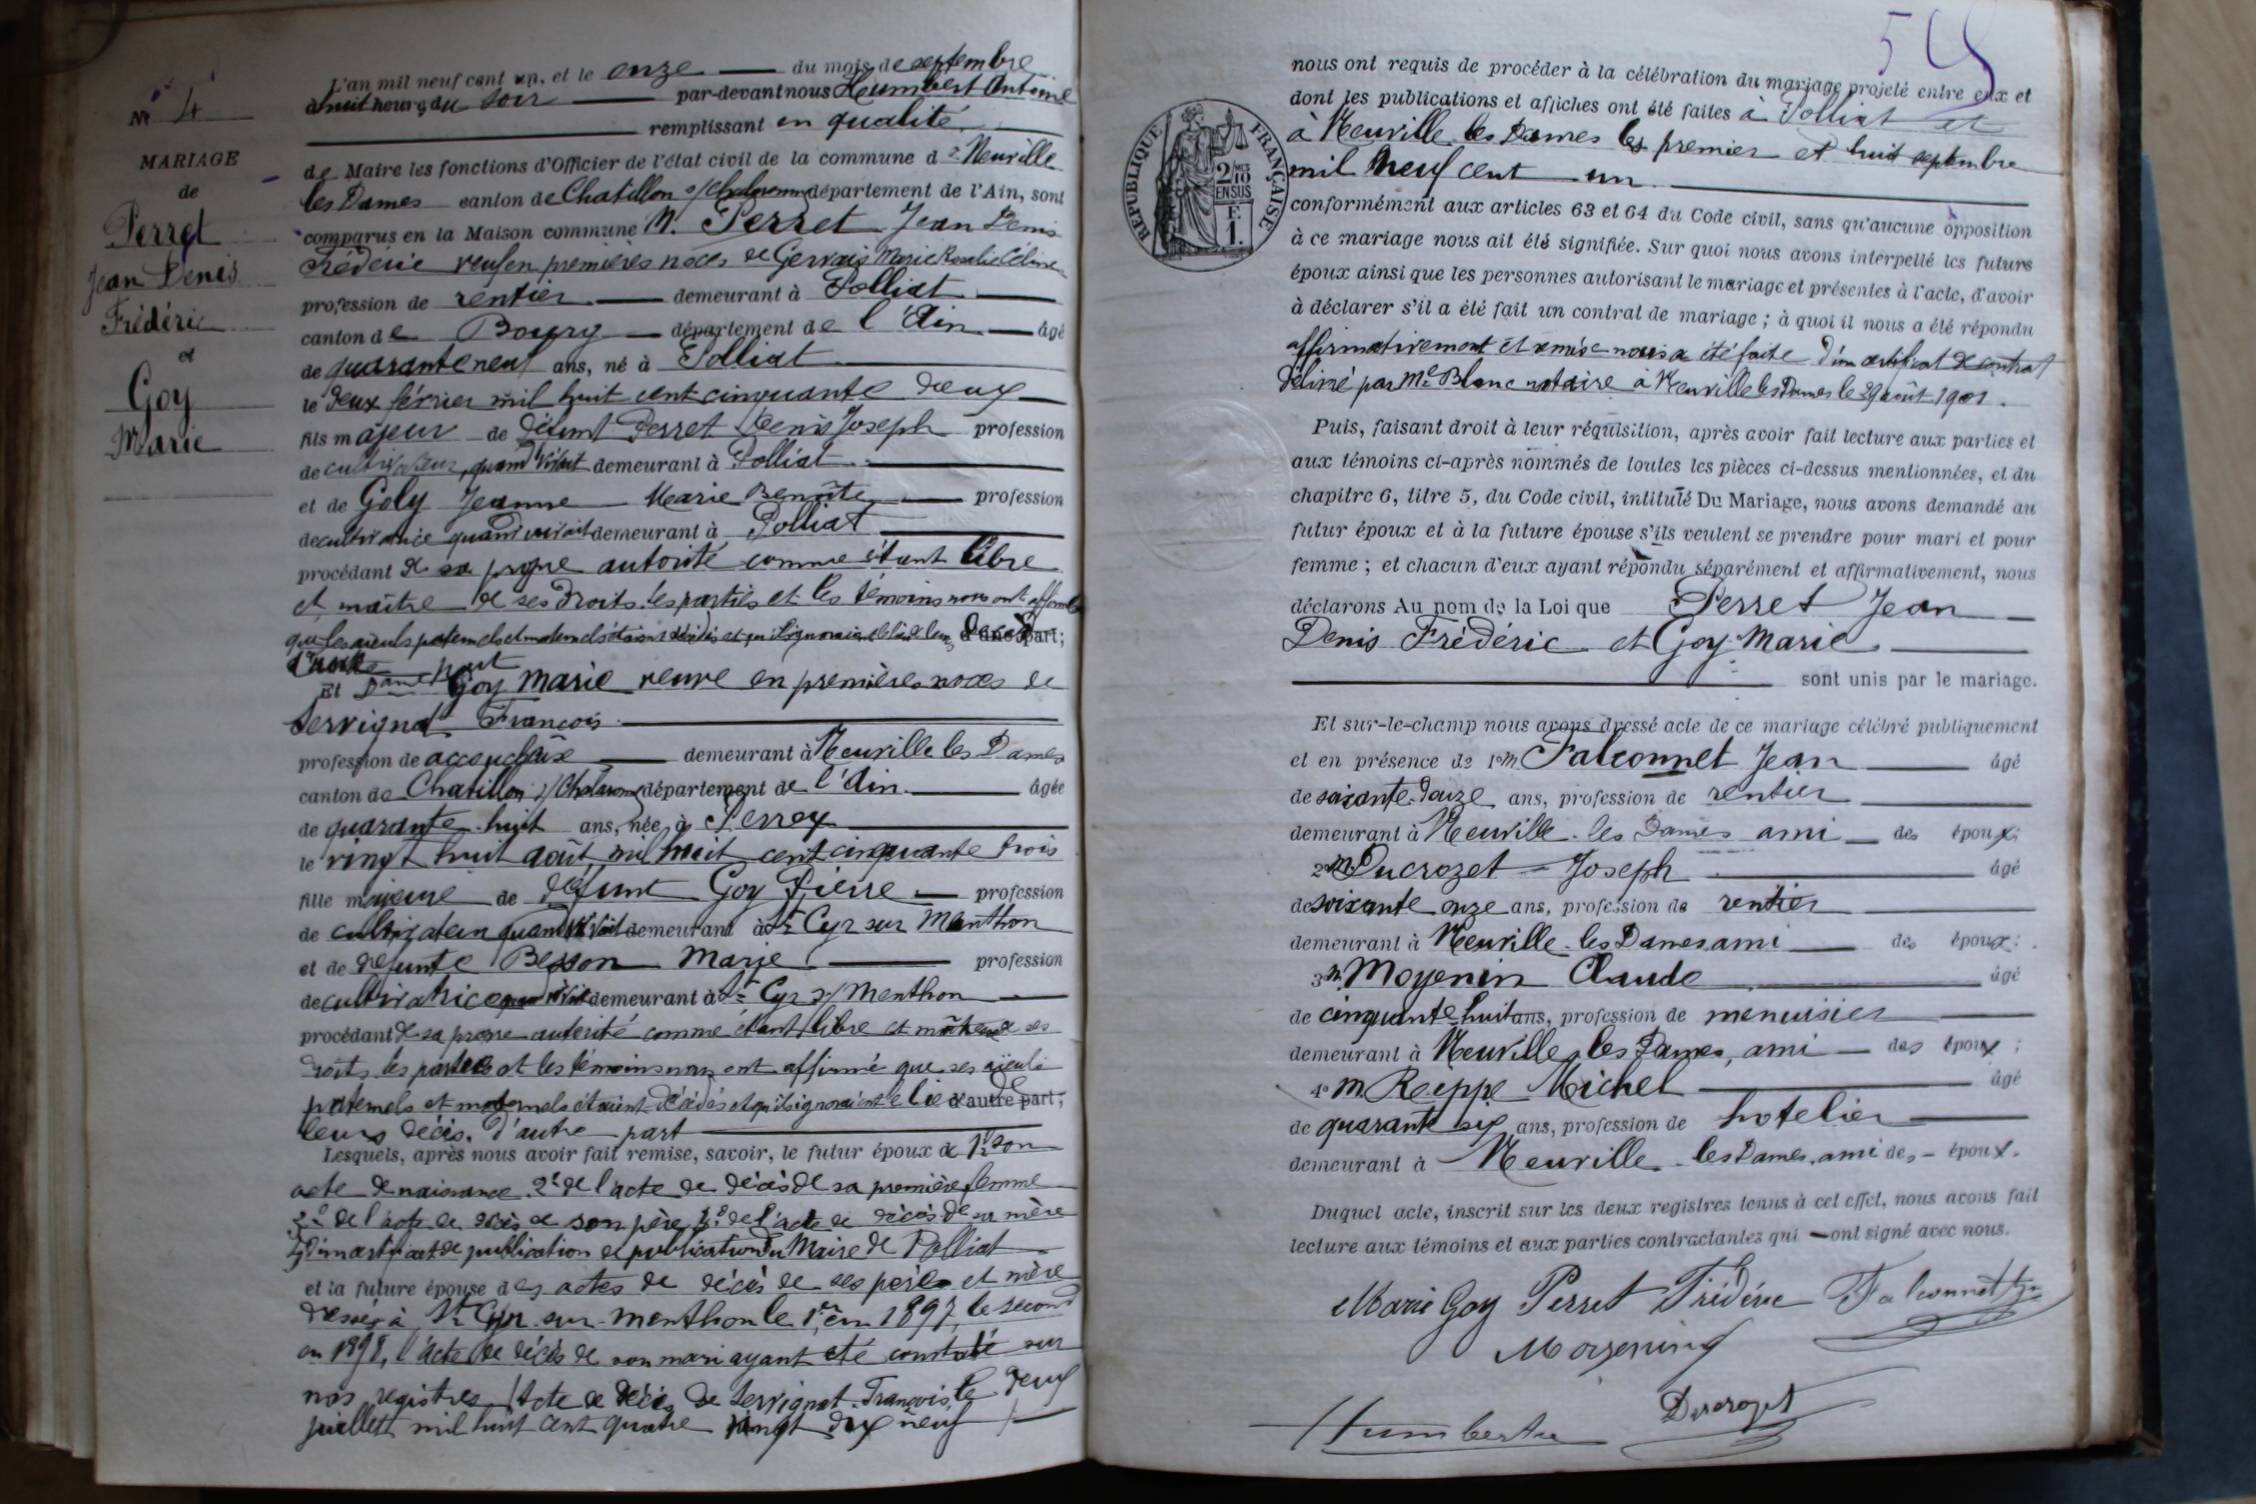 N° 4
MARIAGE
de
Perret
Jean Denis
Frédéric
et
Goy
Marie
L'an mil neuf cent un, et le onze du mois de septembre
à huit heures du soir par-devant nous Humbert Antoine
remplissant en qualité
de Maire les fonctions d'Officier de l'état civil de la commune de Neuville
les Dames canton de Chatillon s/ Chalaronne département de l'Ain, sont
comparus en la Maison commune M. Perret Jean Denis
Frédéric veuf en premières noces de Gervais Marie Rosalie Céline
profession de rentier demeurant à Polliat
canton de Bourg département de l'Ain âgé
de quarante neuf ans, né à Polliat
le deux février mil huit cent cinquante deux
fils majeur de défunt Perret Denis Joseph profession
de cultivateur, quand vivait demeurant à Polliat
et de Goly Jeanne Marie Benoite profession
de cultivatrice quand vivait demeurant à Polliat
procédant de sa propre autorité comme étant libre
et maître de ses droits. les parties et les témoins nous ont affirmé
que les aïeuls paternels et maternels étaient décédés et qu'ils ignoraient le lieu de leur décès d'une part;
d'une part
Et Dame Goy Marie veuve en premières noces de
Servignat François
profession de accoucheuse demeurant à Neuville les Dames
canton de Chatillon s/ Chalaronne département de l'Ain âgée
de quarante-huit ans, née à Perrex
le vingt huit août mil huit cent cinquante trois
fille majeure de défunt Goy Pierre profession
de cultivateur quand vivait demeurant à St Cyr sur Menthon
et de défunte Besson Marie profession
de cultivatrice quand vivait demeurant à St Cyr s/ Menthon
procédant de sa propre autorité comme étant libre et maîtresse de ses
droits. les parties et les témoins nous ont affirmé que ses aïeuls
paternels et maternels étaient décédés et qu'ils ignoraient le lieu de d'autre part;
leurs décès. d'autre part
Lesquels, après nous avoir fait remise, savoir, le futur époux de 1° son
acte de naissance 2° de l'acte de décès de sa première femme
3° de l'acte de décès de son père 4° de l'acte de décès de sa mère
5° d'un certificat de publication de publication du Maire de Polliat
et la future épouse des actes de décès de ses père et mère
dressés à St Cyr sur Menthon le 1er en 1897, le second
en 1898, l'acte de décès de son mari ayant été constaté sur
nos registres (Acte de décès de Servignat François, le deux
juillet mil huit cent quatre vingt dix neuf)
RÉPUBLIQUE FRANÇAISE
2/10
EN SUS
F.
1.
nous ont requis de procéder à la célébration du mariage projeté entre eux et
dont les publications et affiches ont été faites à Polliat et
à Neuville les Dames les premier et huit septembre
mil neuf cent un
conformément aux articles 63 et 64 du Code civil, sans qu'aucune opposition
à ce mariage nous ait été signifiée. Sur quoi nous avons interpellé les futurs
époux ainsi que les personnes autorisant le mariage et présentes à l'acte, d'avoir
à déclarer s'il a été fait un contrat de mariage; à quoi il nous a été répondu
affirmativement et remise nous a été faite d'un certificat de contrat
délivré par Me Blanc notaire à Neuville les Dames le 29 août 1901.
Puis, faisant droit à leur réquisition, après avoir fait lecture aux parties et
aux témoins ci-après nommés de toutes les pièces ci-dessus mentionnées, et du
chapitre 6, titre 5, du Code civil, intitulé Du Mariage, nous avons demandé au
futur époux et à la future épouse s'ils veulent se prendre pour mari et pour
femme; et chacun d'eux ayant répondu séparément et affirmativement, nous
déclarons Au nom de la Loi que Perret Jean
Denis Frédéric et Goy Marie
sont unis par le mariage.
Et sur-le-champ nous avons dressé acte de ce mariage célébré publiquement
et en présence de 1° M. Falconnet Jean âgé
de soixante-douze ans, profession de rentier
demeurant à Neuville-les Dames ami des époux;
2° M. Ducrozet Joseph âgé
de soixante onze ans, profession de rentier
demeurant à Neuville-les Dames ami des époux;
3° M. Moyenin Claude âgé
de cinquante huit ans, profession de menuisier
demeurant à Neuville-les Dames, ami des époux;
4° M. Reppe Michel âgé
de quarante six ans, profession de hotelier
demeurant à Neuville-les Dames, ami des époux.
Duquel acte, inscrit sur les deux registres tenus à cet effet, nous avons fait
lecture aux témoins et aux parties contractantes qui ont signé avec nous.
Marie Goy Perret Frédéric Falconnet
Moyenin
Ducrozet
Humbert